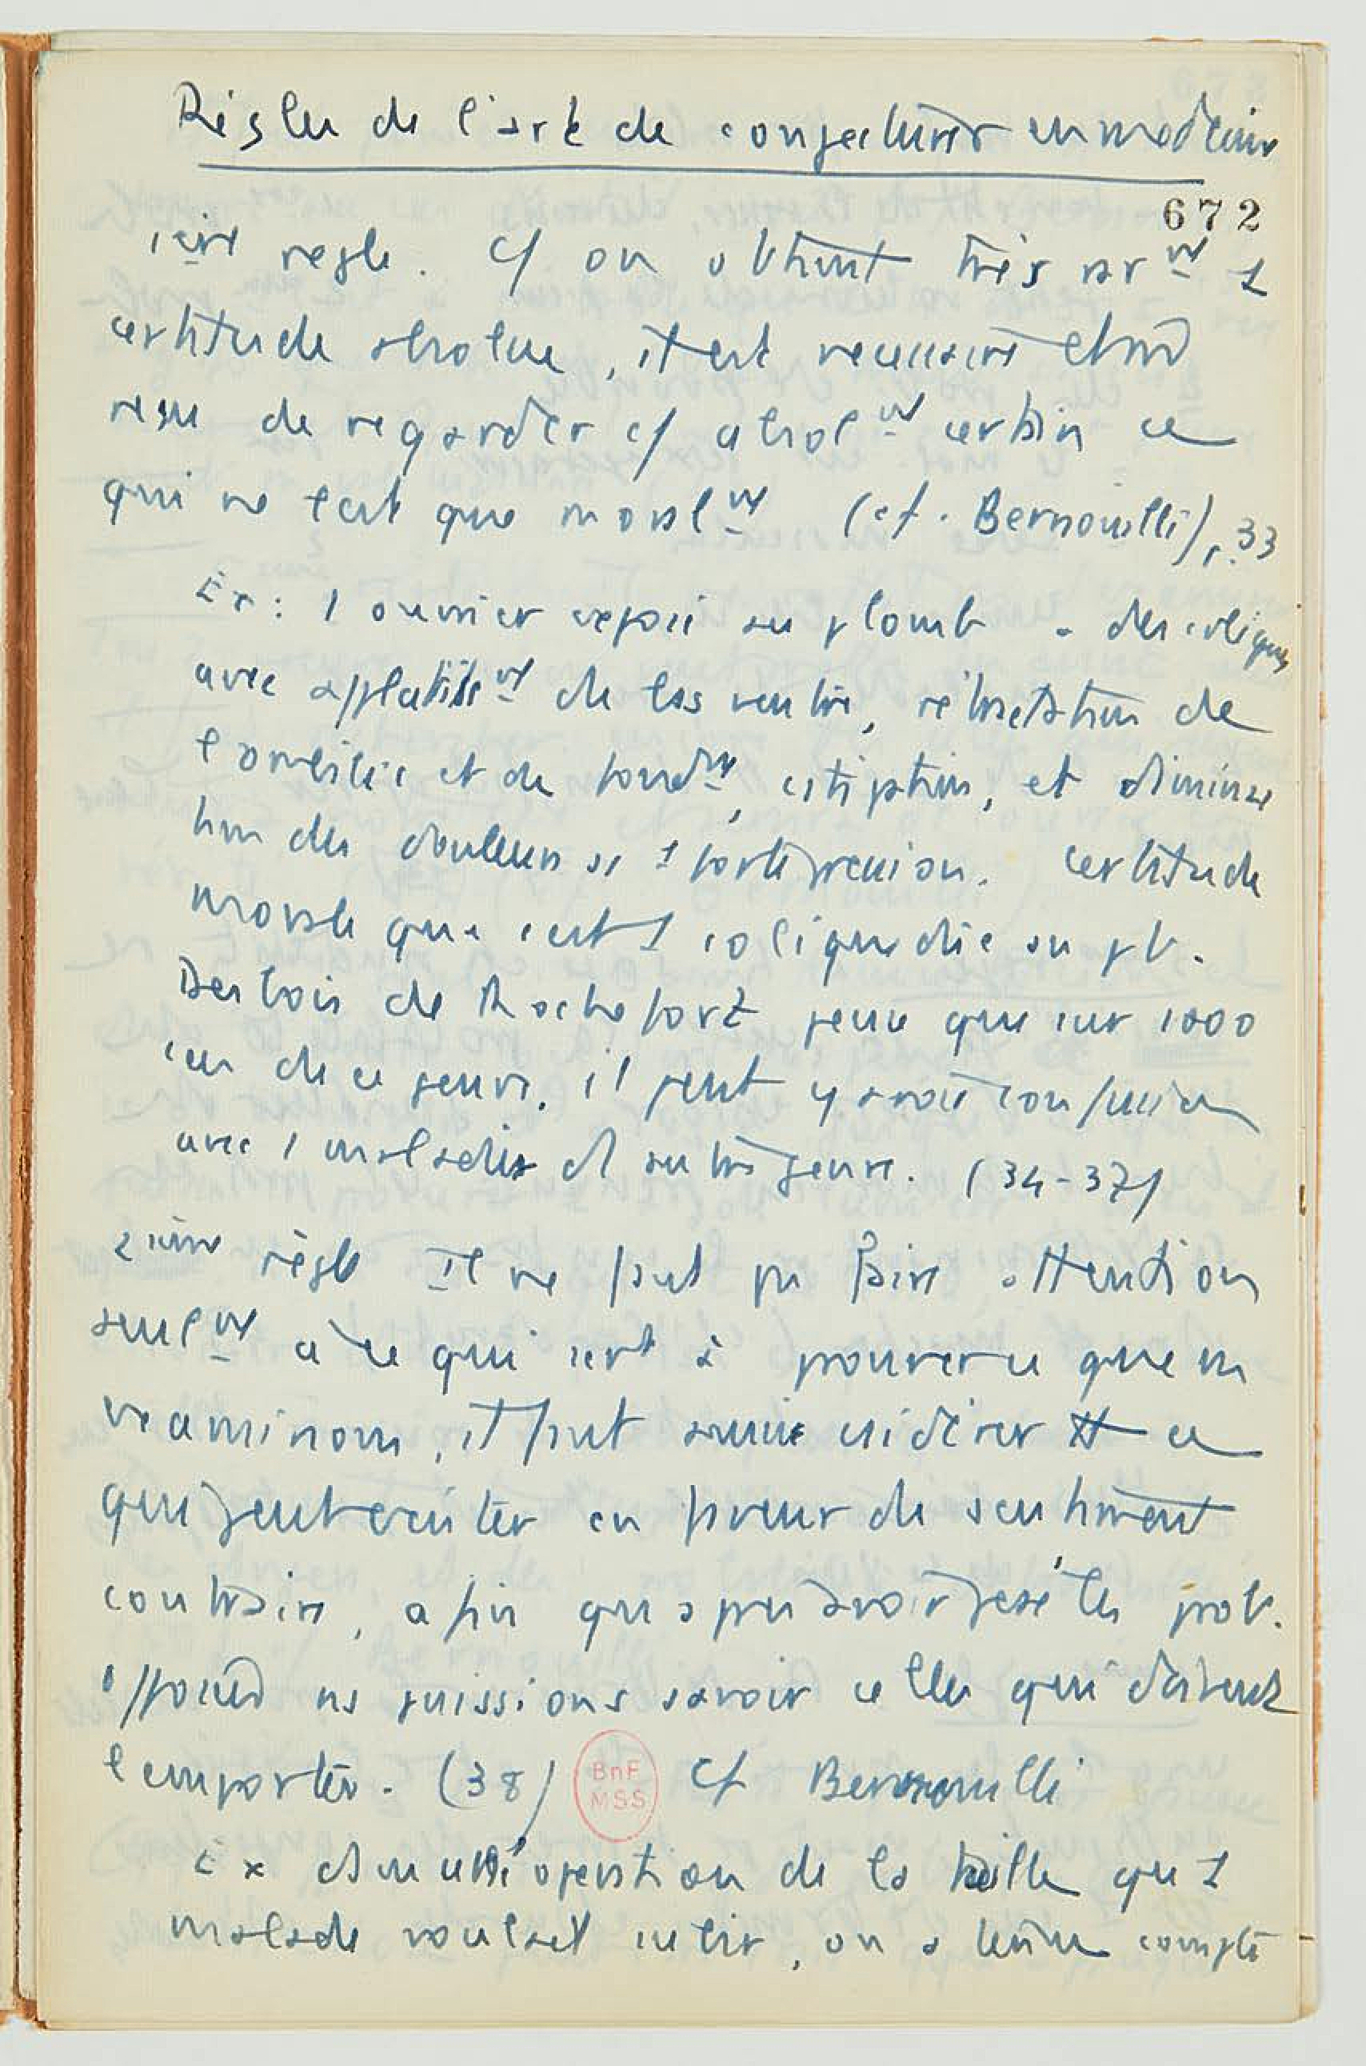 Règles de l'art de conjecturer en médecine
672
1ère règle. C/ on obtient très rar^mt 1
certitude absolue, il est nécessaire et md
reçu de regarder c/ absol^mt certain ce
qui ne l'est que moral^mt (cf. Bernouilli) p. 33
Ex : 1 ouvrier exposé au plomb a des coliques
avec aplatiss^mt de bas ventre, rétractation de
l'ombilic et de fond^mt, cstipation, et diminua
tion des douleurs si 1 forte pression. Certitude
morale que c'est 1 colique due au pb.
Desbois de Rochefort pense que sur 1000
cas de ce genre, il peut y avoir confusion
avec 1 maladie d'autre genre. (34-37)
2ième règle Il ne faut pas faire attention
seul^mt à ce qui sert à prouver ce que ns
examinons, il faut aussi csidérer tt ce
qui peut exister en faveur du sentiment
contraire, afin qu'après avoir pesé les prob.
opposées ns puissions savoir celles qui doivent
l'emporter. (38) cf Bernouilli
BnF
MSS
Ex ds une opération de la taille que 1
malade voulait subir, on a tenu compte